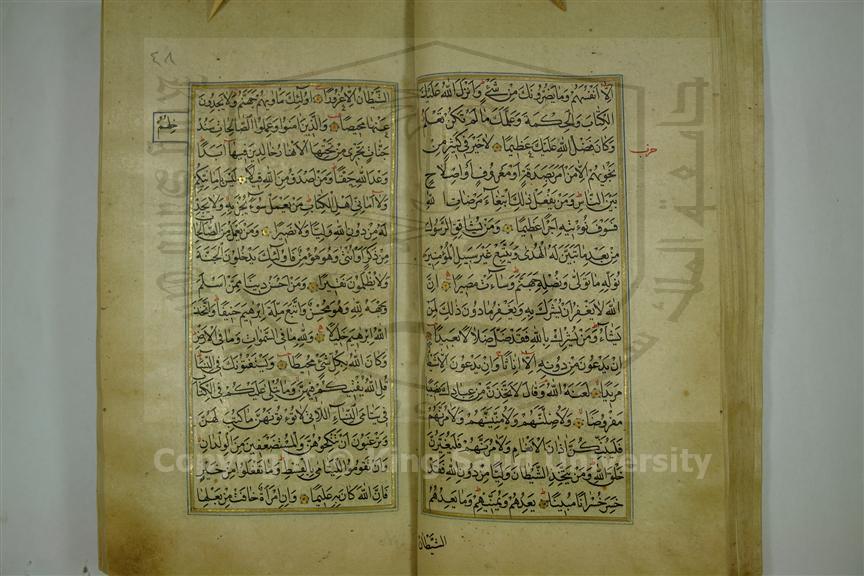 الا انفسهم وما يضرونك من شئ وانزل الله عليك
الكتاب والحكمة وعلمك ما لم تكن تعلم
وكان فضل الله عليك عظيما لاخير في كثير من
حزب
نجويهم الا من امر بصدقة او معروف او اصلاح
بين الناس ومن يفعل ذلك ابتغاء مرضات الله
فسوف نؤتيه اجرا عظيما ومن يشاقق الرسول
من بعد ما تبين له الهدى ويتبع غير سبيل المؤمنين
نوله ما تولى ونصله جهنم وساءت مصيرا ان
الله لا يغفر ان يشرك به ويغفر ما دون ذلك لمن
يشاء ومن يشرك بالله فقد ضل ضلالا بعيدا
ان يدعون من دونه الا اناثا وان يدعون الا شيطانا
مريدا لعنه الله وقال لاتخذن من عبادك نصيبا
مفروضا ولاضلنهم ولامنينهم ولامرنهم
فليبتكن اذان الانعام ولامرنهم فليغيرن
خلق الله ومن يتخذ الشيطان وليا من دون الله فقد
خسر خسرانا مبينا يعدهم ويمنيهم وما يعدهم
الشيطان
٤٨
الشيطان الا غرورا اولئك ماويهم جهنم ولا يجدون
عنها محيصا والذين امنوا وعملوا الصالحات سند
جنات تجري من تحتها الانهار خالدين فيها ابدا
وعد الله حقا ومن اصدق من الله قيلا ليس بامانيكم
ولا اماني اهل الكتاب من يعمل سوءا يجز به ولا يجد
له من دون الله وليا ولا نصيرا ومن يعمل من الصالحات
من ذكر او انثى وهو مؤمن فاولئك يدخلون الجنة
ولا يظلمون نقيرا ومن احسن دينا ممن اسلم
وجهه لله وهو محسن واتبع ملة ابرهيم حنيفا واتخذ
الله ابرهيم خليلا ولله ما في السموات وما في الارض
وكان الله بكل شئ محيطا ويستفتونك في النساء
قل الله يفتيكم فيهن وما يتلى عليكم في الكتاب
في يتامى النساء اللاتي لا تؤتونهن ما كتب لهن
وترغبون ان تنكحوهن والمستضعفين من الولدان
وان تقوموا لليتامى بالقسط وما تفعلوا من خير
فان الله كان به عليما وان امراة خافت من بعلها
جامعة الملك سعود
Copyright © King Saud University